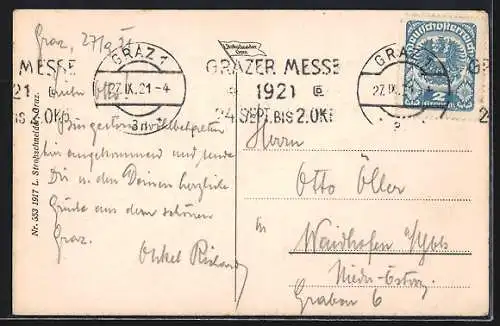 Graz, 27/9 21
GRAZ 1
27.IX.21-4
MESSE
21
BIS 2.OKT
GRAZER MESSE
1921
24 SEPT. BIS 2.OKT.
GRAZ 1
27.IX.21
Deutschösterreich
Lieber Otto!
Bin gestern wohlbehalten
hier angekommen und sende
Dir u. den Deinen herzliche
Grüße aus dem schönen
Graz.
Onkel Richard
Herrn
Otto Öller
in
Waidhofen /Ybbs
Nieder-Österr.
Graben 6
Nr. 553 1917 L. Strohschneider, Graz.